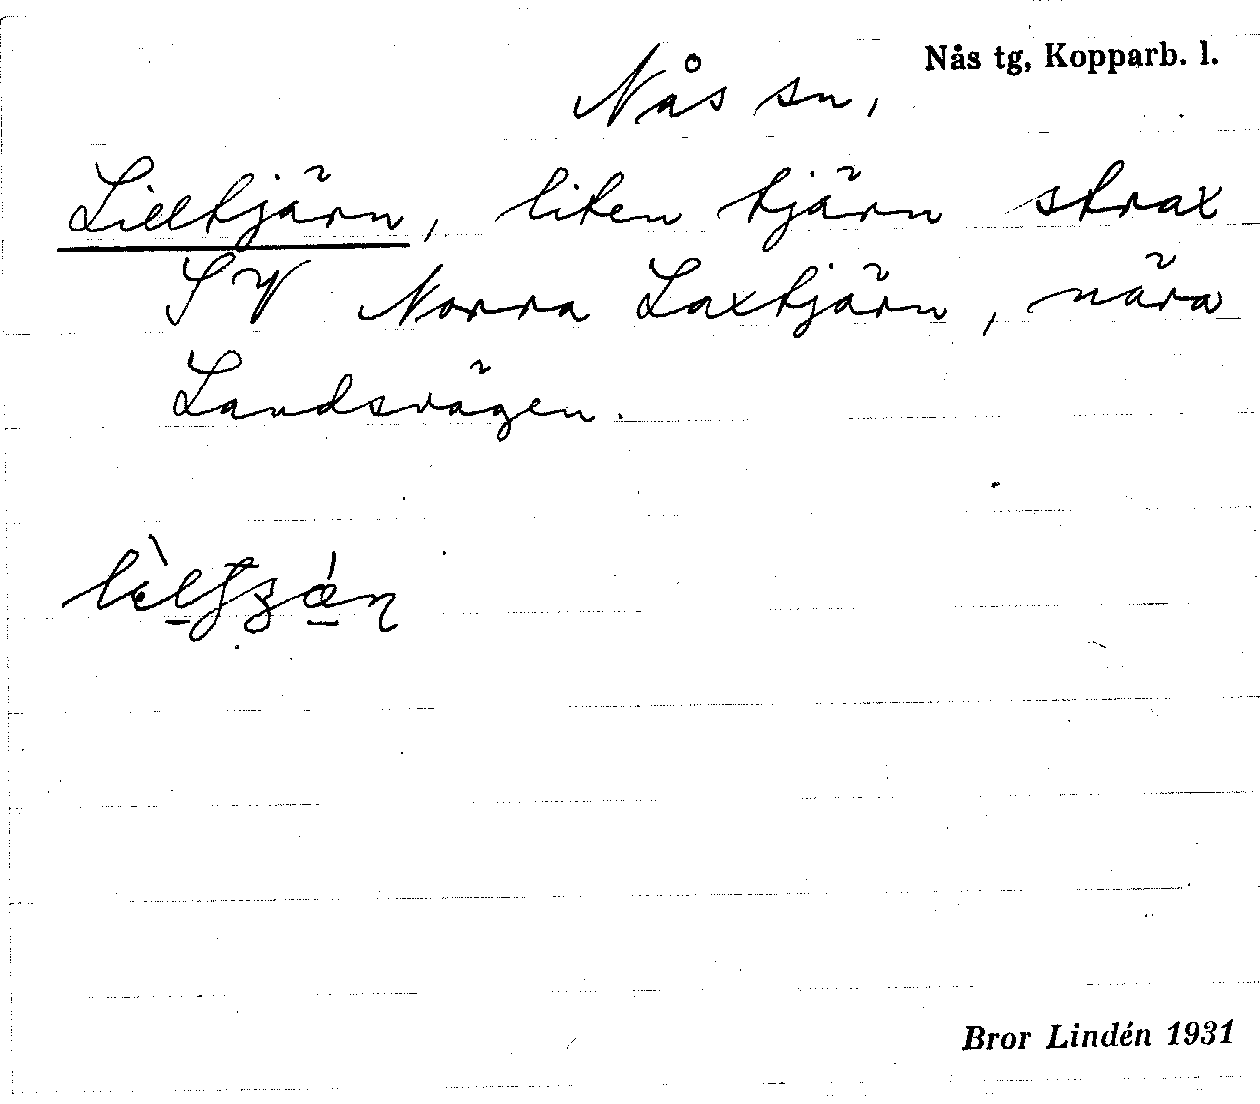 Nås tg, Kopparb. l.
Nås sn,
Lilltjärn, liten tjärn strax
SV Norra Laxtjärn, nära
Landsvägen.
Bror Lindén 1931